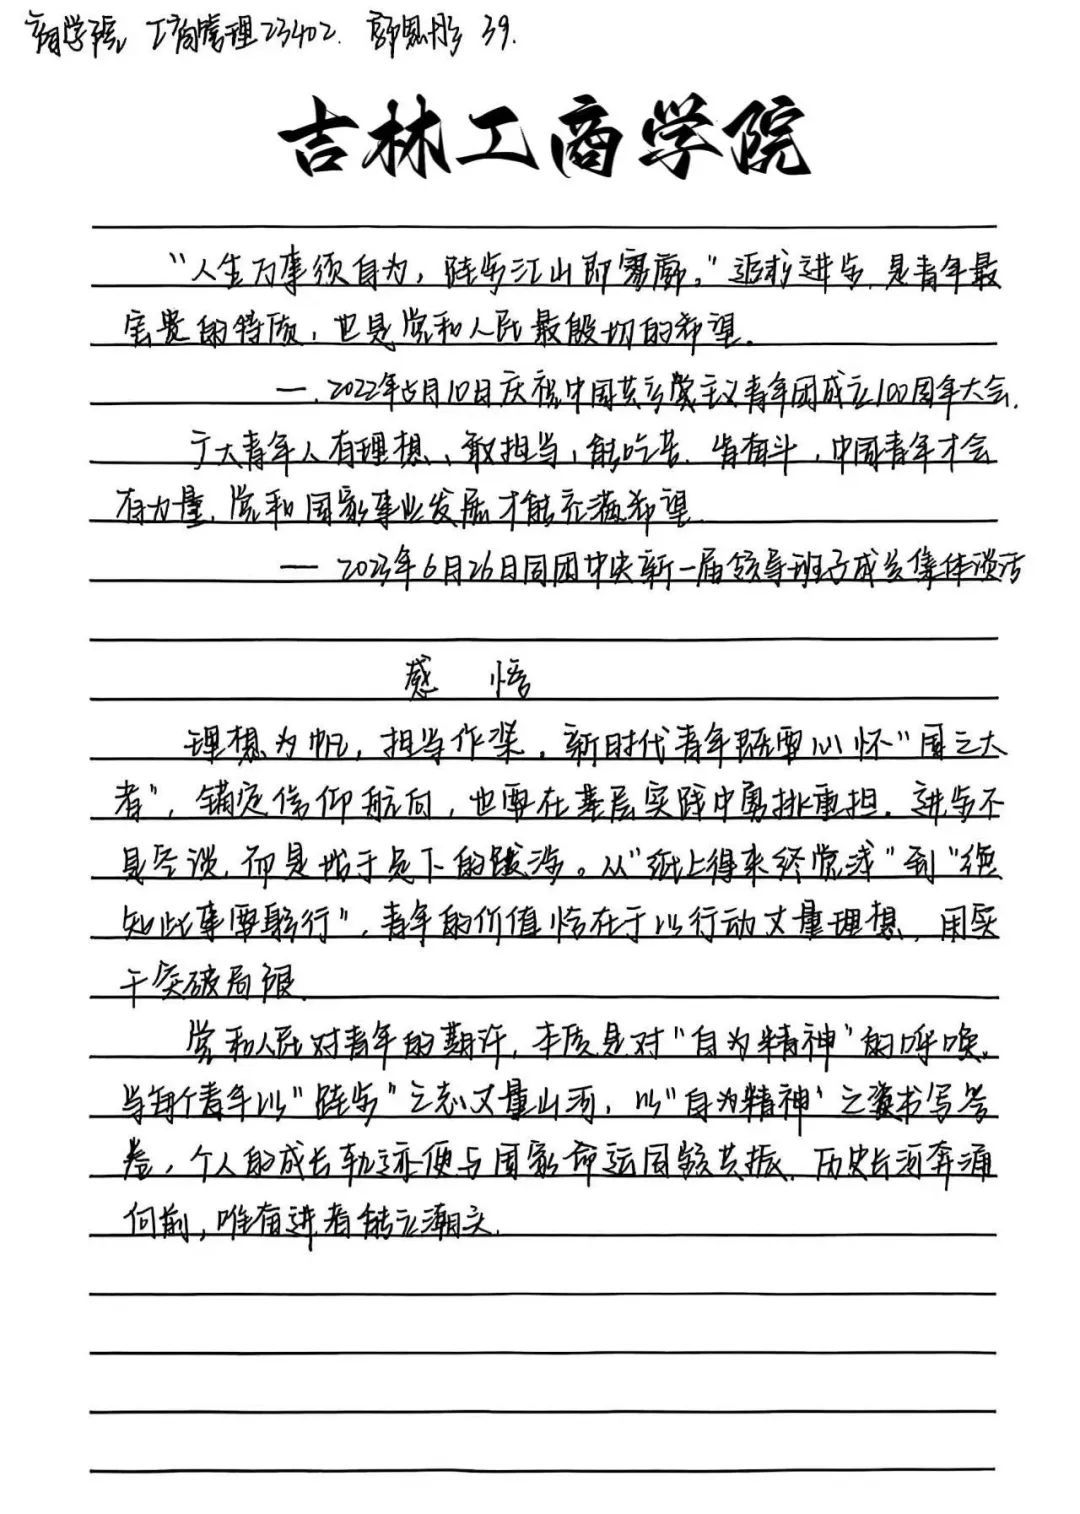 商学院 工商管理23402. 郭思彤 39.
吉林工商学院
“人生万事须自为，跬步江山即寥廓。”追求进步,是青年最
宝贵的特质，也是党和人民最殷切的希望。
—.2022年5月10日庆祝中国共产党主义青年团成立100周年大会.
广大青年人有理想、敢担当，能吃苦、肯奋斗，中国青年才会
有力量，党和国家事业发展才能充满希望
— 2023年6月26日同团中央新一届领导班子成员集体谈话
感 悟
理想为帆，担当作桨。新时代青年既要心怀“国之大
者”，锚定信仰航向，也要在基层实践中勇挑重担。进步不
是空谈，而是始于足下的跋涉。从“纸上得来终觉浅”到“绝
知此事要躬行”，青年的价值恰在于以行动丈量理想，用实
干突破局限.
党和人民对青年的期许，本质是对“自为精神”的呼唤。
当每个青年以“跬步”之志丈量山河，以“自为精神’之姿书写答
卷，个人的成长轨迹便与国家命运同频共振.历史长河奔涌
向前，唯奋进者能立潮头.